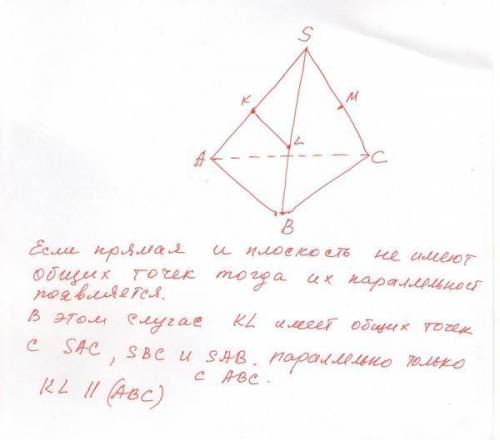 S
K
M
A
L
C
B
Если прямая и плоскость не имеют
общих точек тогда их параллельност
появляется.
В этом случае KL имеет общих точек
с SAC, SBC и SAB. параллельно только
с ABC.
KL || (ABC)